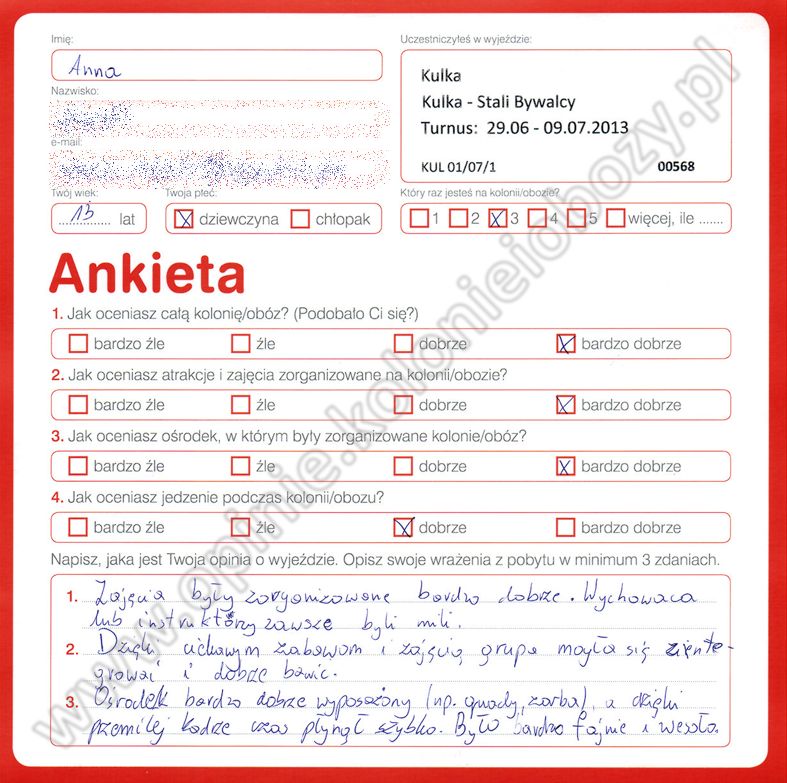 Imię:
Anna
Uczestniczyłeś w wyjeździe:
Kulka
Kulka - Stali Bywalcy
Turnus: 29.06 - 09.07.2013
KUL 01/07/1 00568
Nazwisko:
e-mail:
Twój wiek:
13 lat
Twoja płeć:
dziewczyna chłopak
Który raz jesteś na kolonii/obozie?
1 2 3 4 5 więcej, ile .......
Ankieta
1. Jak oceniasz całą kolonię/obóz? (Podobało Ci się?)
bardzo źle źle dobrze bardzo dobrze
2. Jak oceniasz atrakcje i zajęcia zorganizowane na kolonii/obozie?
bardzo źle źle dobrze bardzo dobrze
3. Jak oceniasz ośrodek, w którym były zorganizowane kolonie/obóz?
bardzo źle źle dobrze bardzo dobrze
4. Jak oceniasz jedzenie podczas kolonii/obozu?
bardzo źle źle dobrze bardzo dobrze
Napisz, jaka jest Twoja opinia o wyjeździe. Opisz swoje wrażenia z pobytu w minimum 3 zdaniach.
1. Zajęcia były zorganizowane bardzo dobrze. Wychowaca
lub instruktorzy zawsze byli mili.
2. Dzięki ciekawym zabawom i zajęcią grupa mogła się zinte-
grować i dobrze bawić.
3. Ośrodek bardzo dobrze wyposażony (np. quady, zorba), a dzięki
przemiłej kadrze czas płynął szybko. Było bardzo fajnie i wesoło.
www.opinie.kolonieiobozy.pl